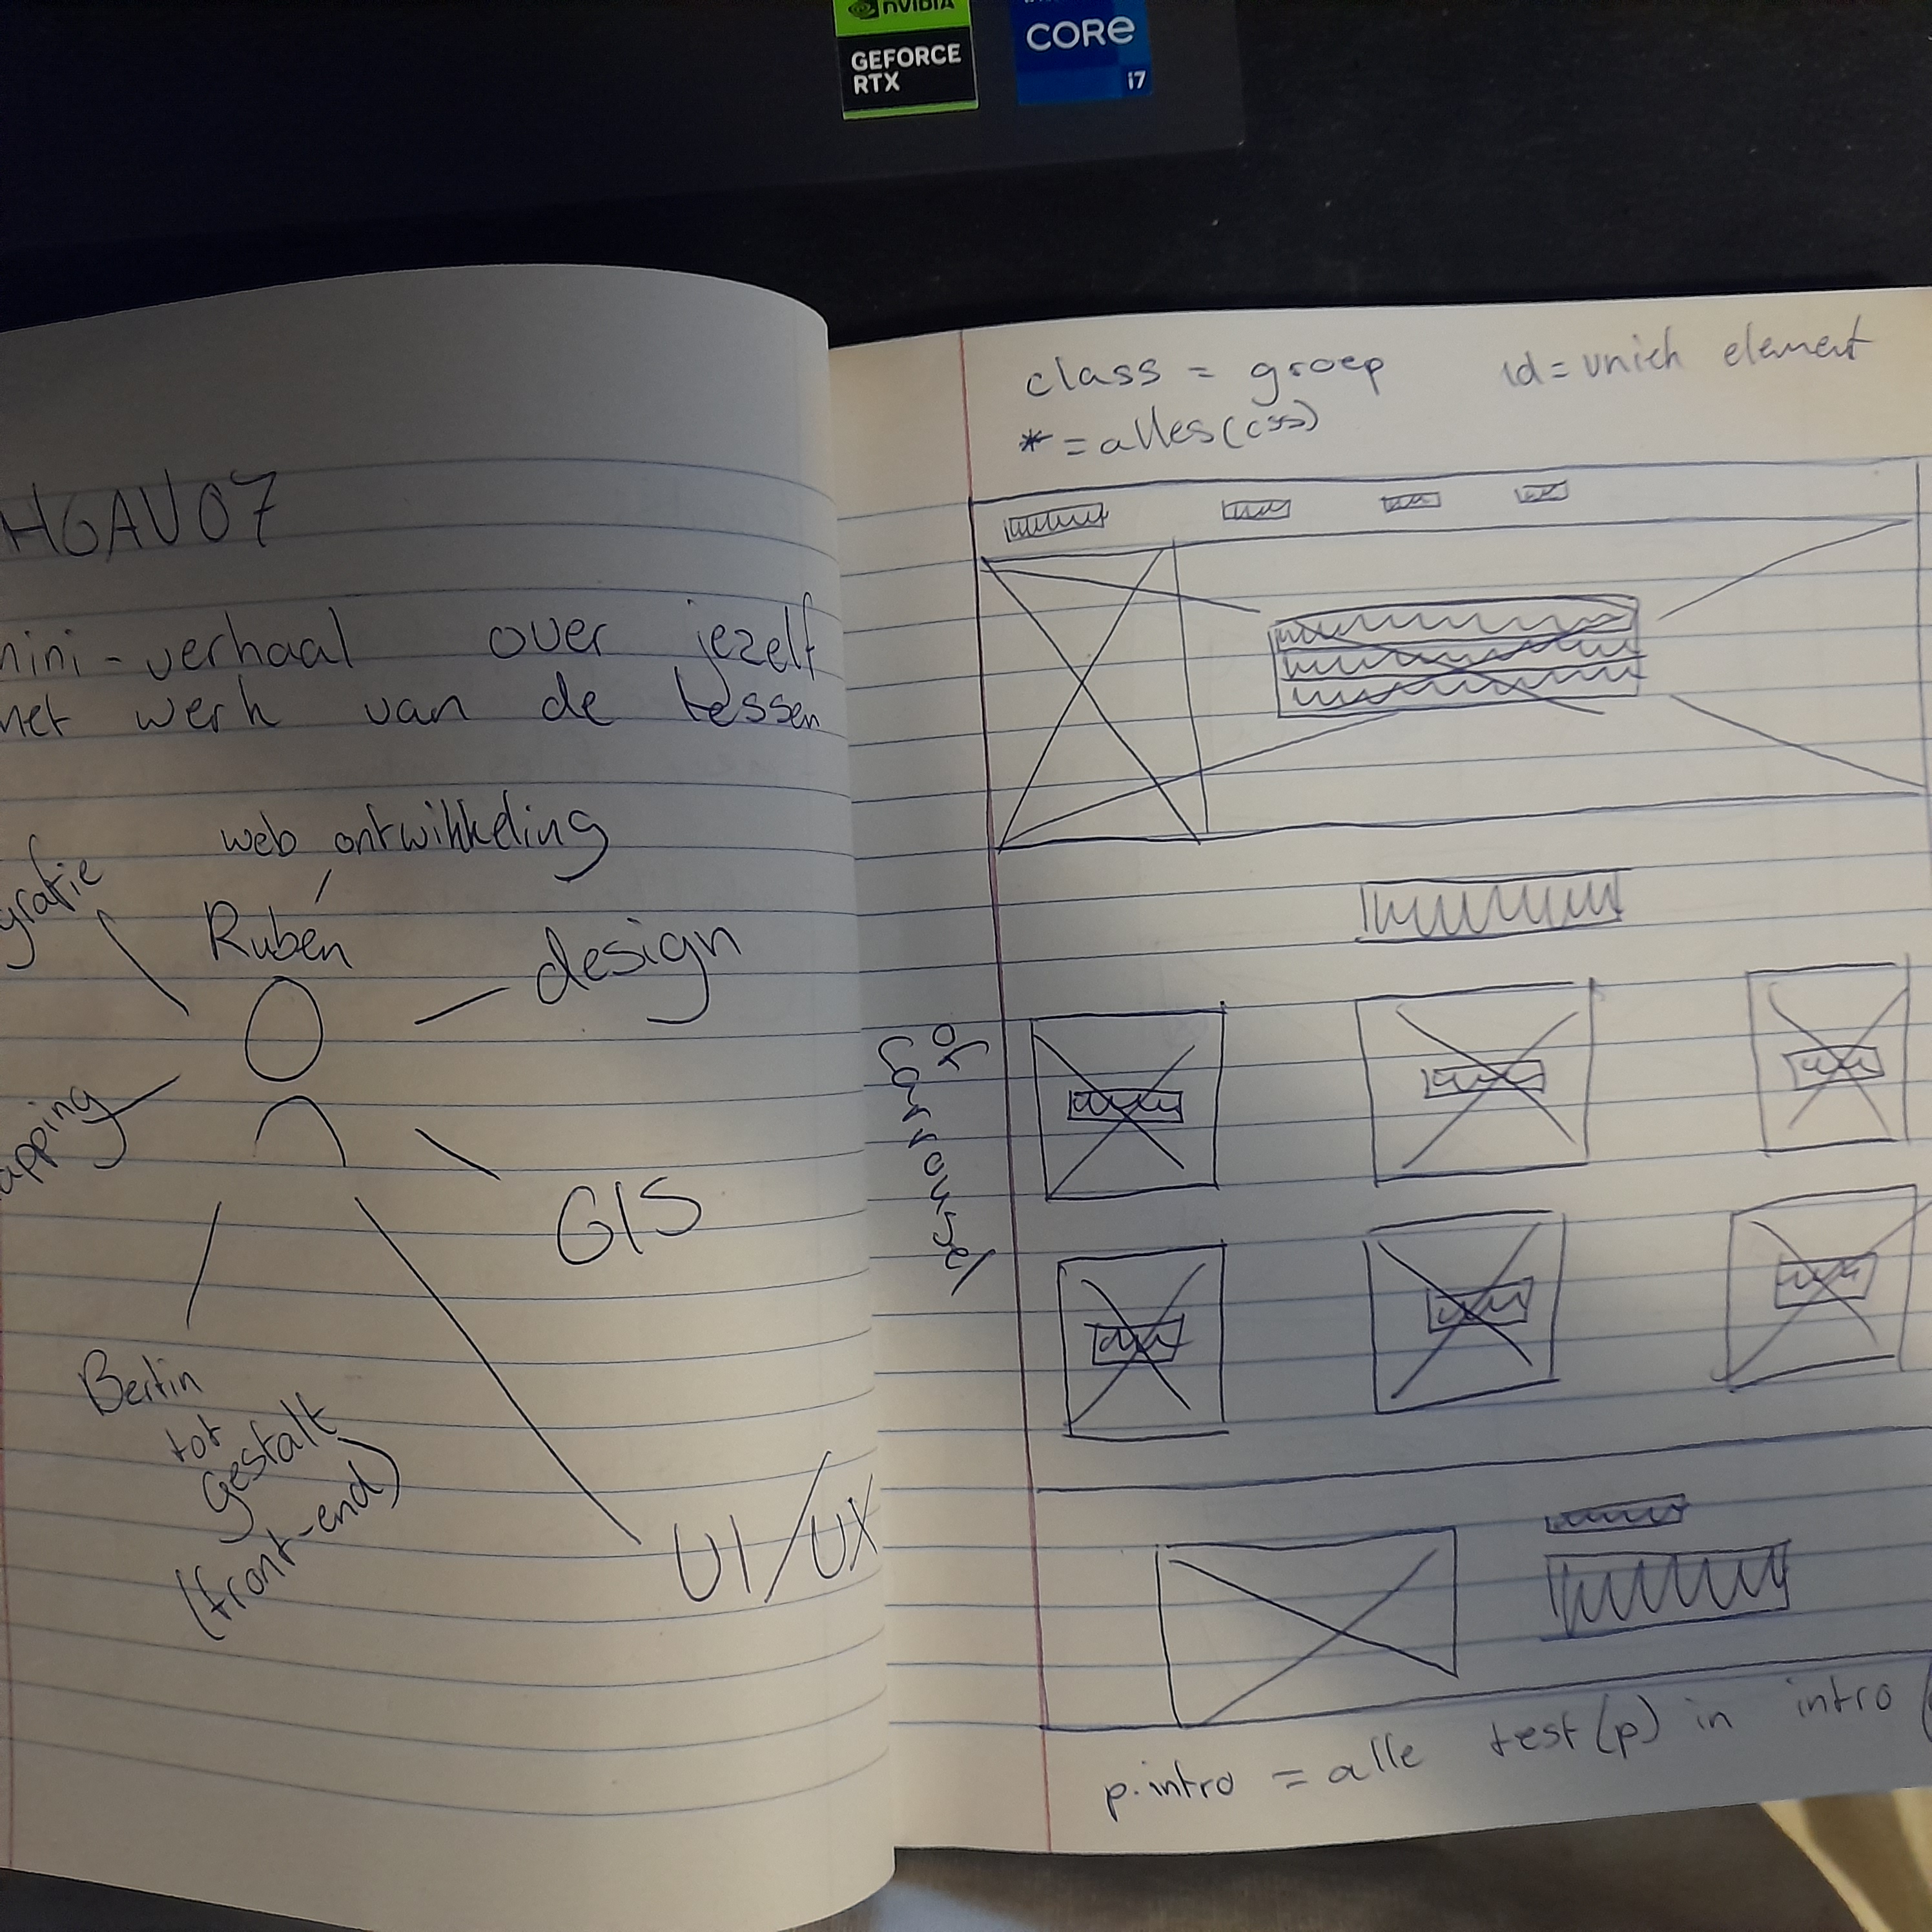 NVIDIA
GEFORCE
RTX
CORE
i7
HGAV07
mini-verhaal over jezelf
met werk van de lessen
web ontwikkeling
grafie
Rubén
design
apping
GIS
Bertin
tot
gestalt
(front-end)
UI/UX
class = groep id = uniek element
* = alles (css)
or
carrousel
p.intro = alle test(p) in intro (